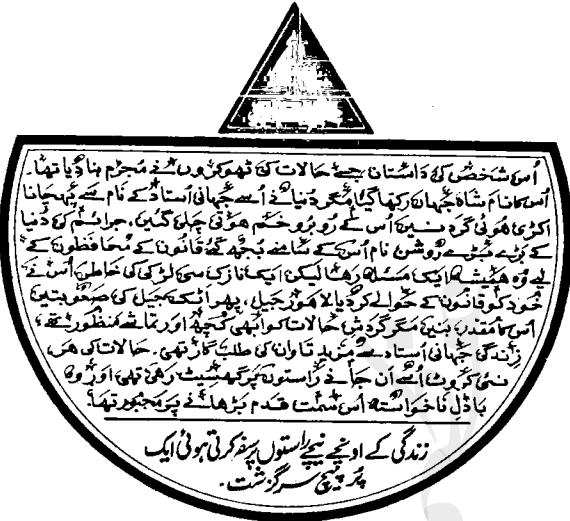 اُس شخص کی داستان جسے حالات کی ٹھوکروں نے مُجرم بنا دیا تھا۔
اس کا نام شاہ جہان رکھا گیا مگر دُنیا نے اُسے جہانی اُستاد کے نام سے پہچانا
اکڑی ہوئی گردنیں اُس کے رُوبرو خم ہوتی چلی گئیں، جرائم کی دُنیا
کے بڑے بڑے روشن نام اُس کے سامنے بُجھ گئے قانون کے محافظوں کے
لیے وُہ ہمیشہ ایک مسئلہ رہا لیکن ایک نازک سی لڑکی کی خاطر اُس نے
خُود کو قانون کے حوالے کر دیا لاہور جیل، پھر اٹک جیل کی صعوبتیں
اس کا مقدر بنیں مگر گردشِ حالات کو ابھی کُچھ اور تماشے منظور تھے،
زندگی جہانی اُستاد سے مزید تاوان کی طلب گار تھی۔ حالات کی ہر
نئی کروٹ اُسے ان جانے راستوں پر گھسیٹ رہی تھی اور وہ
بادلِ ناخواستہ اُس سمت قدم بڑھانے پر مجبور تھا۔
زندگی کے اونچے نیچے راستوں پر سفر کرتی ہوئی ایک
پُر پیچ سرگزشت۔